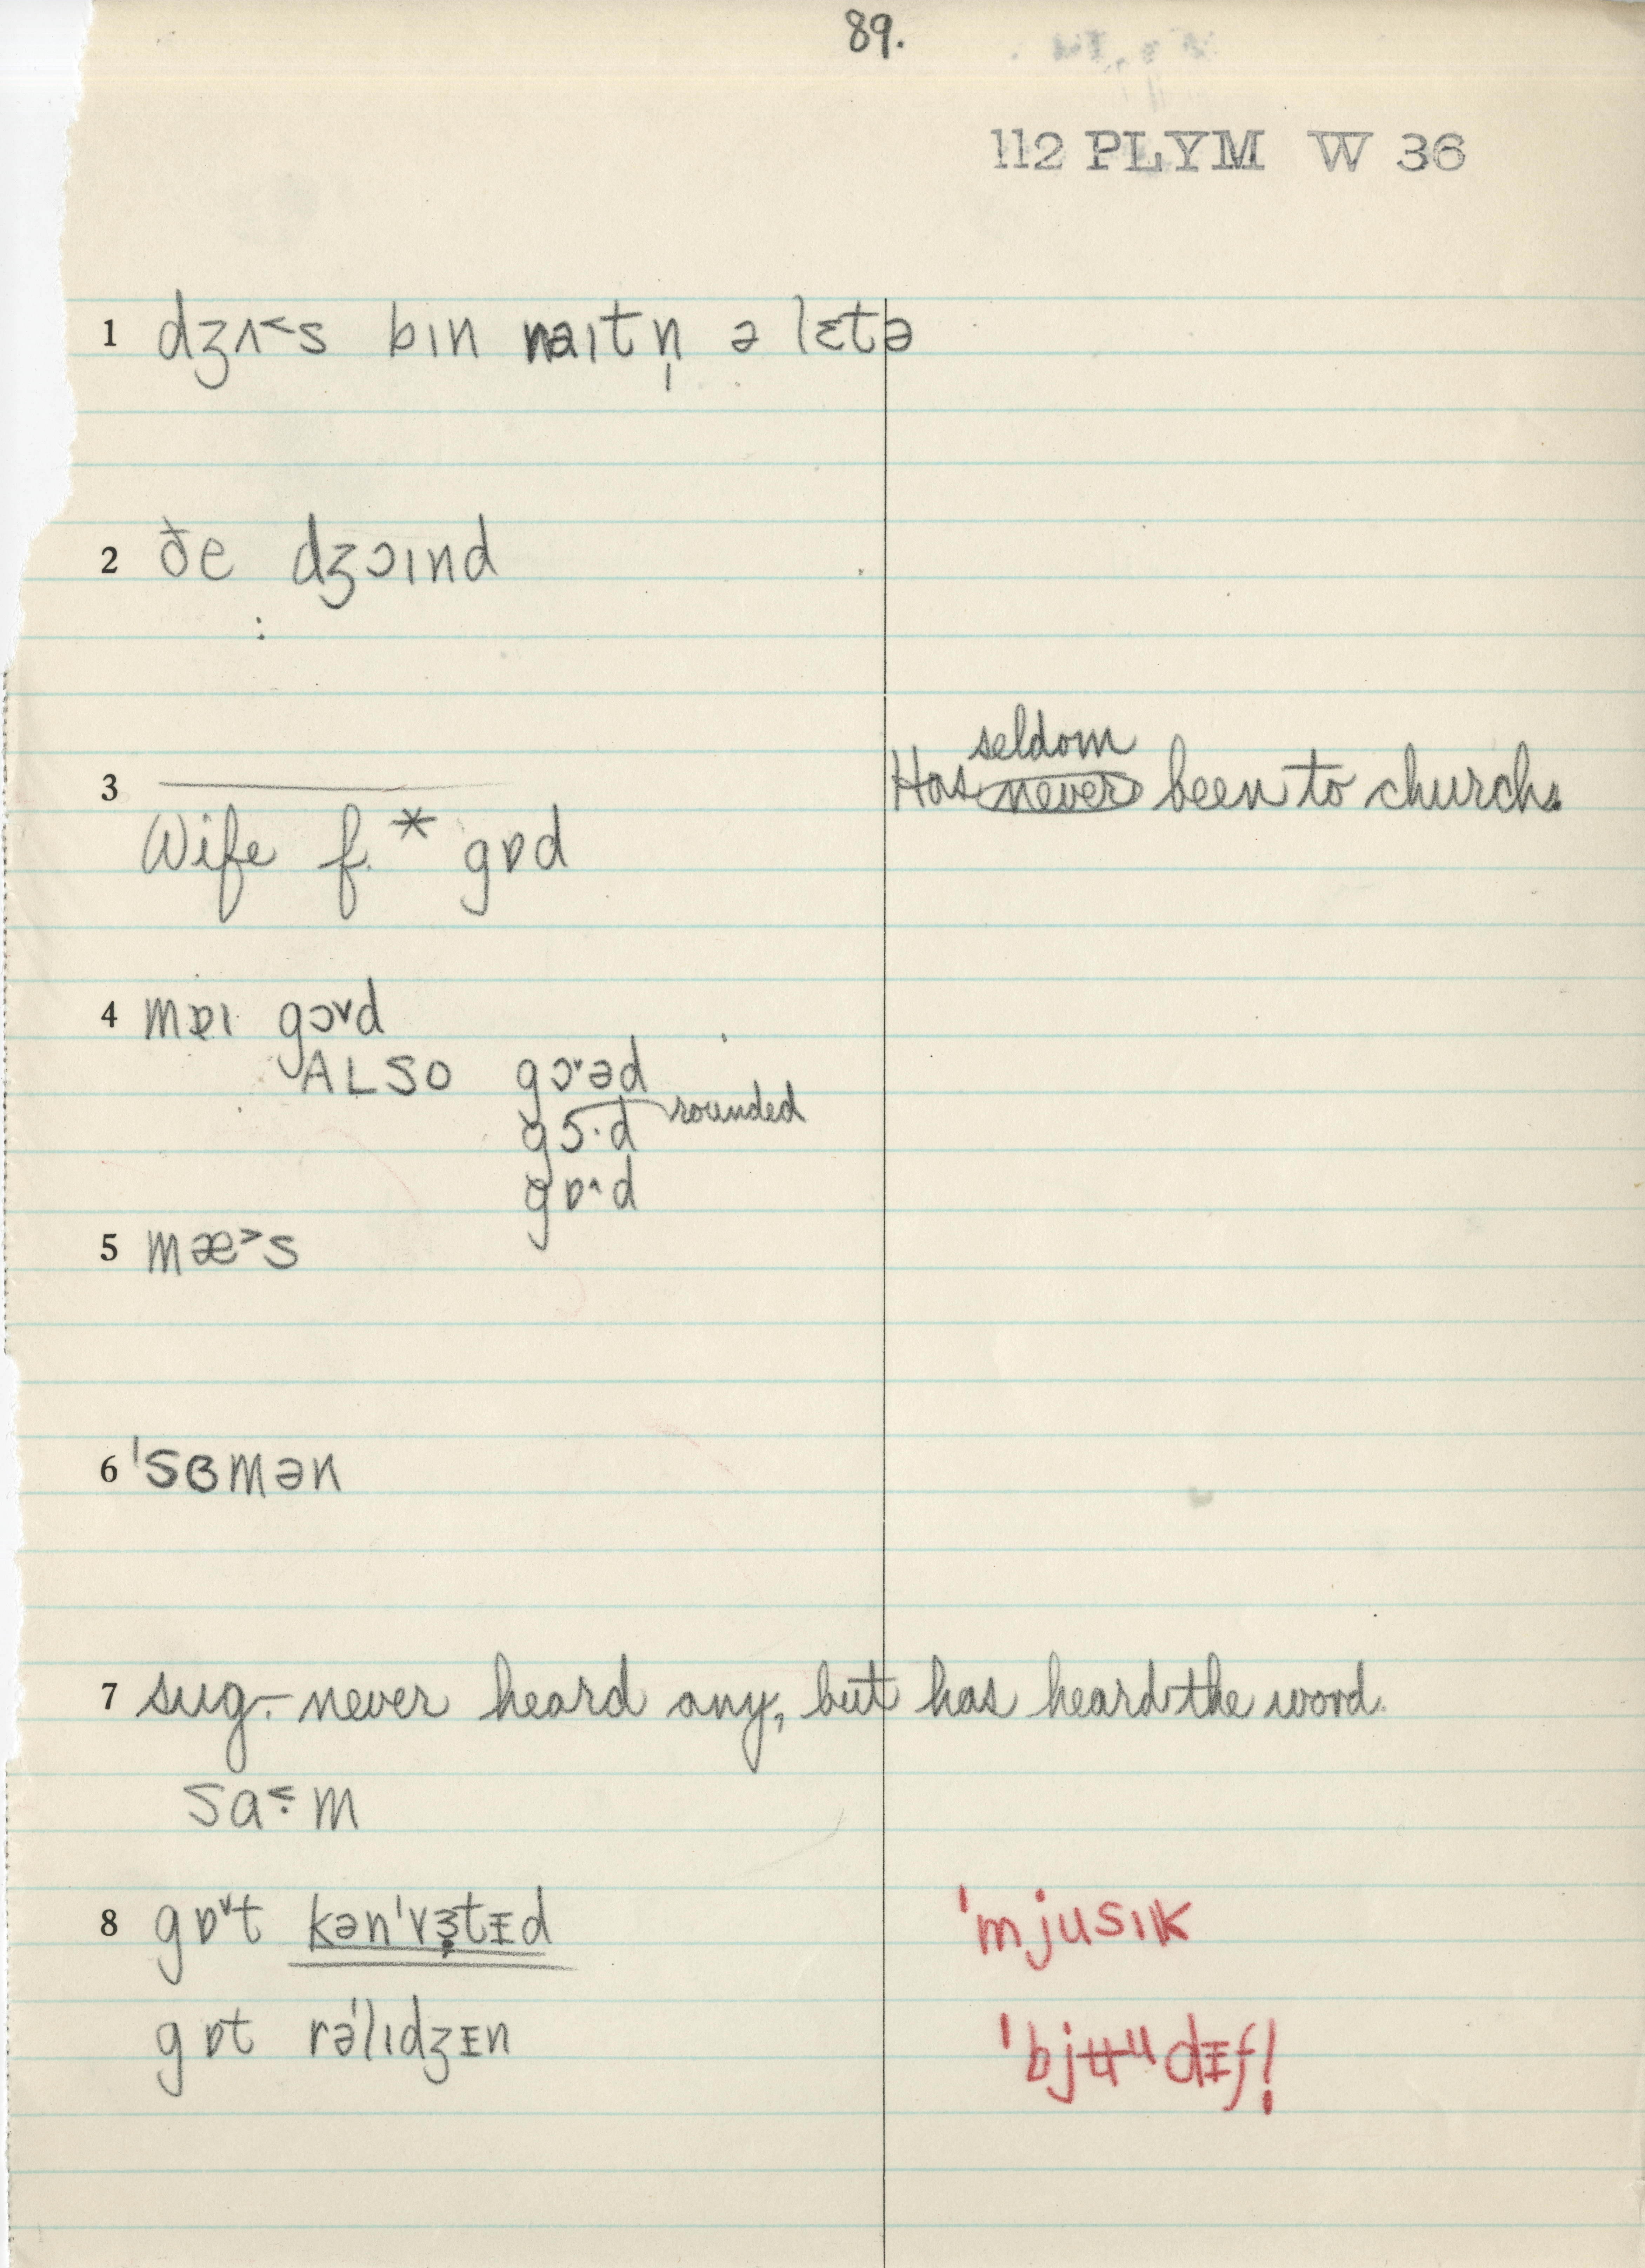 89.
112 PLYM W 36
1 dʒʌ˂s bɪn raɪtn̩ ə lɛtə
2 ðe dʒɔɪnd
:
seldom
3 Has never been to church.
Wife f. * gɒd
4 mɒɪ gɔ˅d
ALSO gɔ˅əd
rounded
gɔ·d
gɒ˄d
5 mæ˃s
6 ˈsɞmən
7 sug. - never heard any, but has heard the word.
sa˂·m
8 gɒ˅t kənˈvɜtɪd
ˈmjusɪk
gɒt rəˈlɪdʒɪn